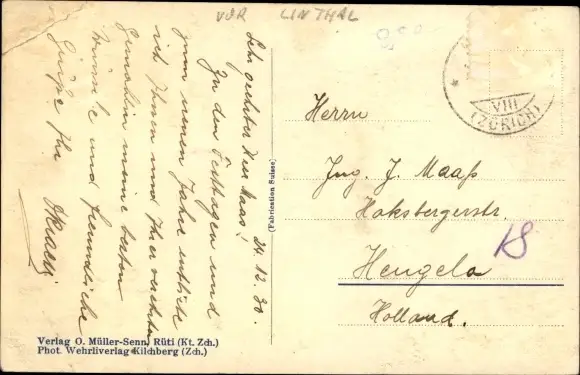 VOR LINTHAL
24.12.30.
Sehr geehrter Herr Maas!
Zu den Festtagen und
zum neuen Jahre entbiete
ich Ihnen und Ihrer verehrten
Gemahlin meine besten
Wünsche und freundliche
Grüße Ihr
VIII
(ZÜRICH)
Herrn
Ing. J. Maaß
Haksbergerstr.
18
Hengelo
Holland.
(Fabrication Suisse)
Verlag O. Müller-Senn, Rüti (Kt. Zch.)
Phot. Wehrliverlag Kilchberg (Zch.)